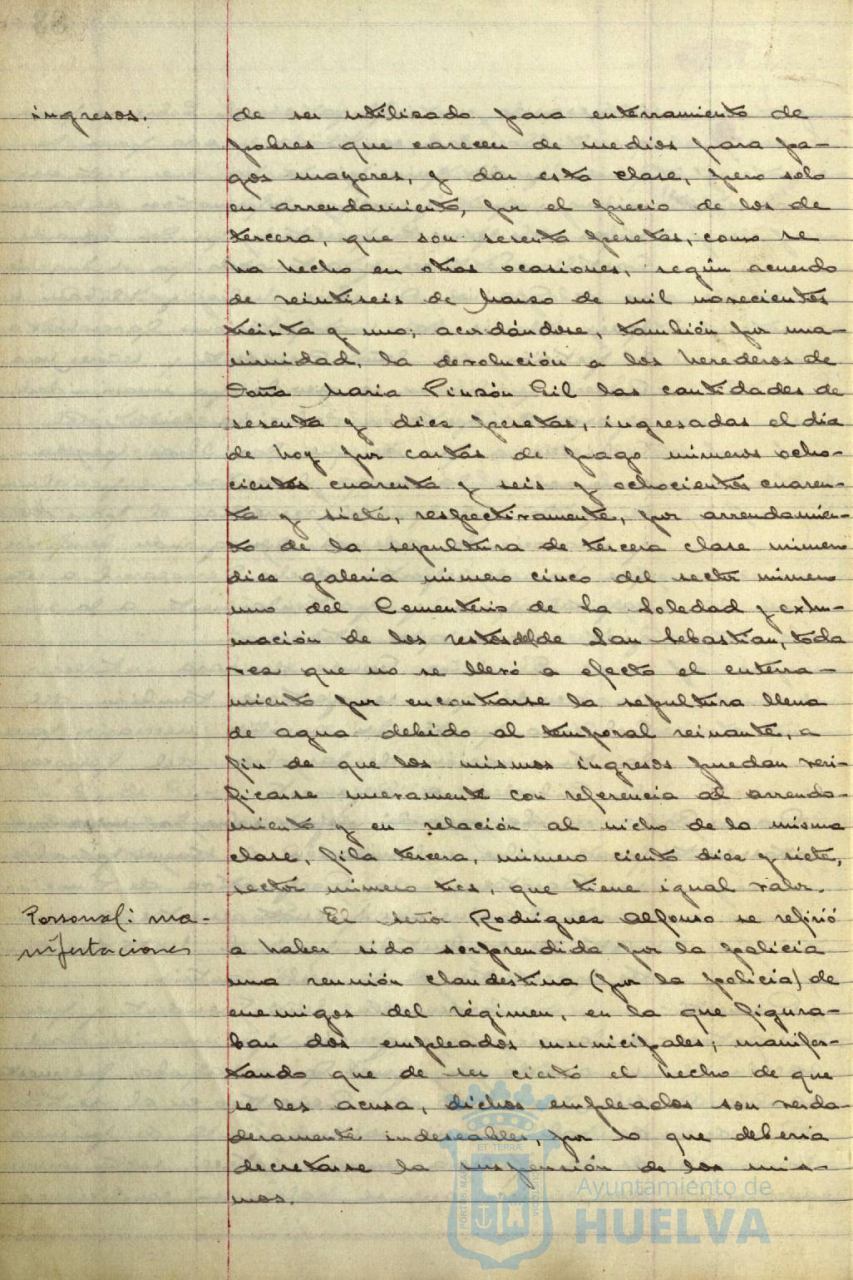 ingresos.
de ser utilizado para enterramiento de
pobres que carecen de medios para pa-
gos mayores, y dar esta clase, pero solo
en arrendamiento, por el precio de los de
tercera, que son sesenta pesetas, como se
ha hecho en otras ocasiones, según acuerdo
de veintiseis de Marzo de mil novecientos
treinta y uno; acordándose, también por una-
nimidad, la devolución a los herederos de
Doña Maria Pinzón Gil las cantidades de
sesenta y diez pesetas, ingresadas el dia
de hoy por cartas de pago números ocho-
cientos cuarenta y seis y ochocientos cuaren-
ta y siete, respectivamente, por arrendamien-
to de la sepultura de tercera clase número
diez galeria número cinco del sector número
uno del Cementerio de la Soledad y exhu-
mación de los restos del de San Sebastian, toda
vez que no se llevó a efecto el enterra-
miento por encontrarse la sepultura llena
de agua debido al temporal reinante, a
fin de que los mismos ingresos puedan veri-
ficarse nuevamente con referencia al arrenda-
miento y en relación al nicho de la misma
clase, fila tercera, número ciento diez y siete,
sector número tres, que tiene igual valor.
Personal: ma-
nifestaciones
El señor Rodriguez Alfonso se refirió
a haber sido sorprendida por la policia
una reunión clandestina (por la policia) de
enemigos del régimen, en la que figura-
ban dos empleados municipales; manifes-
tando que de ser cierto el hecho de que
se les acusa, dichos empleados son verda-
deramente indeseables, por lo que deberia
decretarse la suspensión de los mis-
mos.
Ayuntamiento de
HUELVA